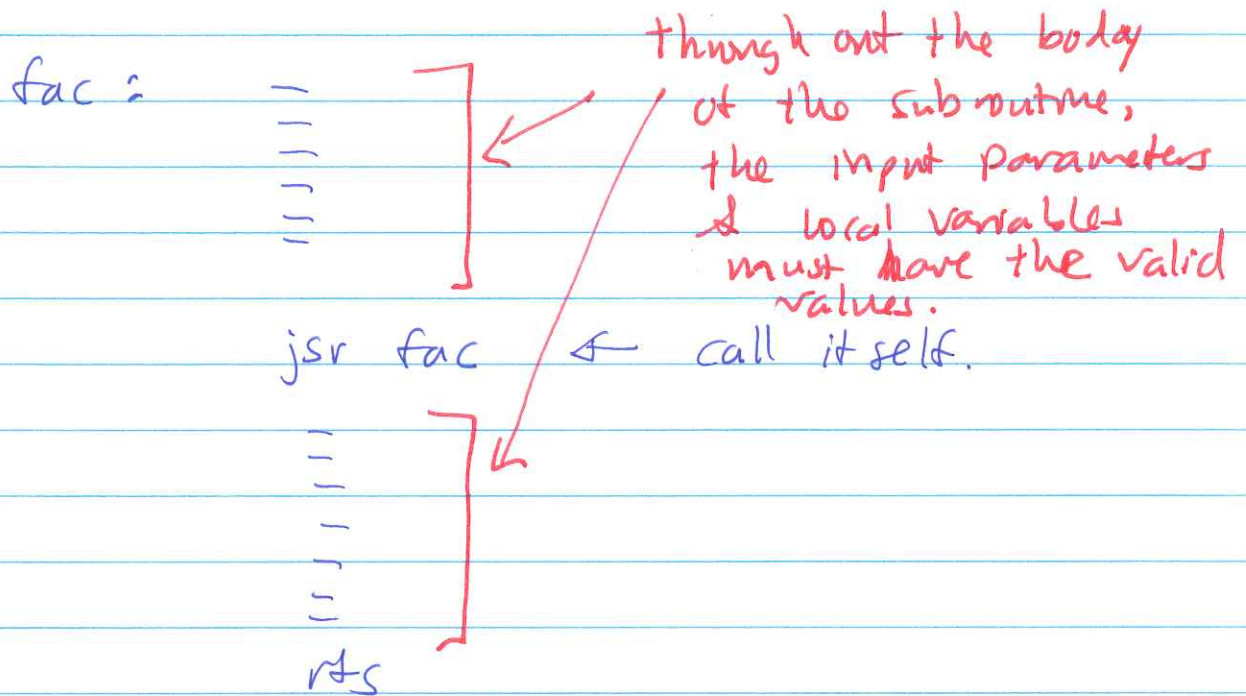 fac :
through out the body
of the subroutine,
the input parameters
& local variables
must have the valid
values.
jsr fac ← call itself.
rts